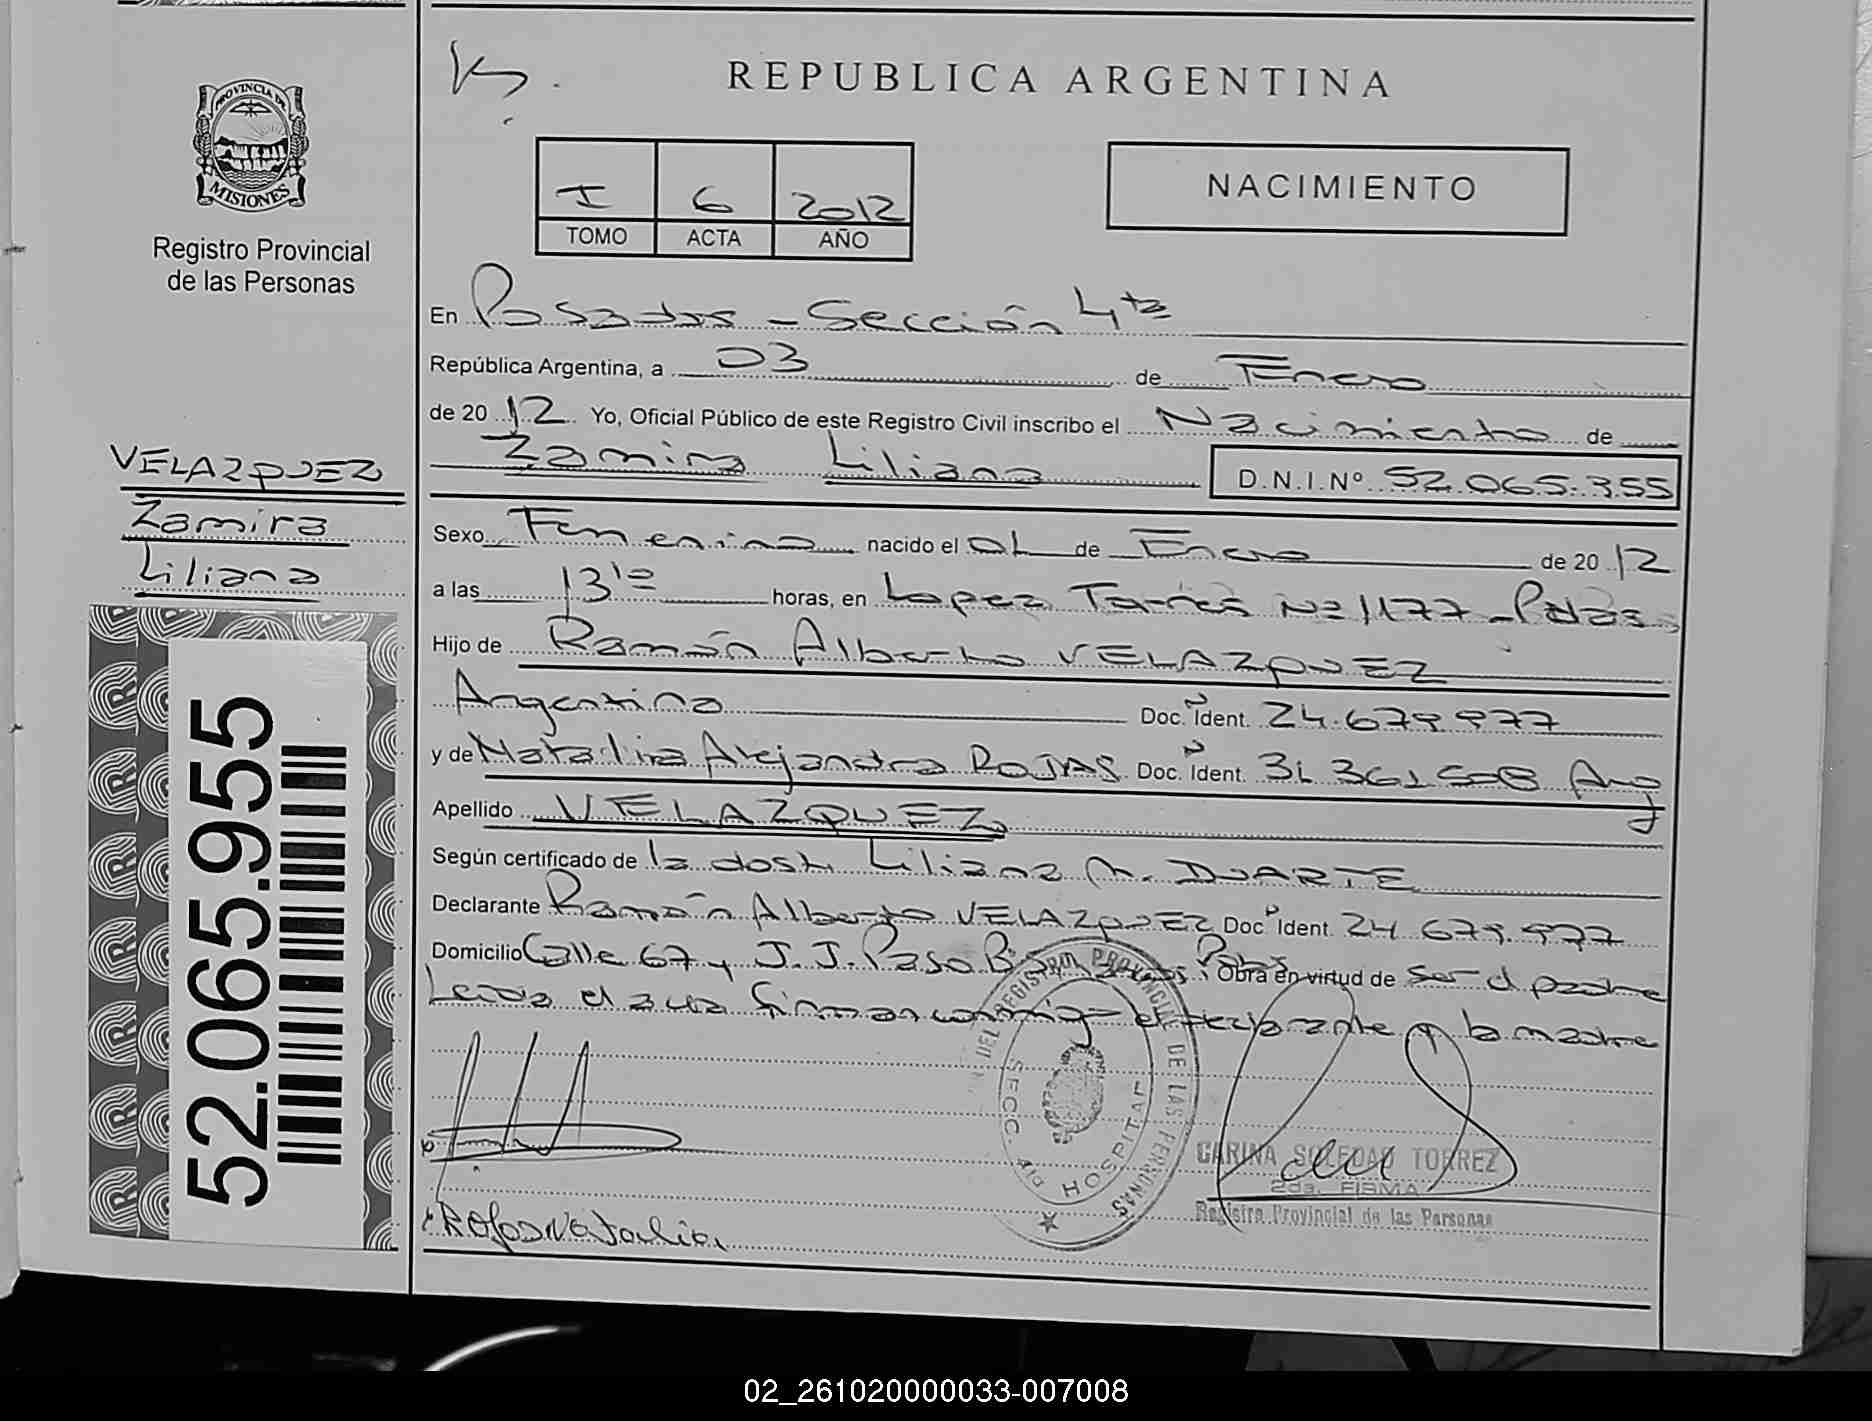 REPUBLICA ARGENTINA
PROVINCIA DE
MISIONES
Registro Provincial
de las Personas
I 6 2012
TOMO ACTA AÑO
NACIMIENTO
En Posadas - Sección 4ta
República Argentina, a 03 de Enero
de 2012 Yo, Oficial Público de este Registro Civil inscribo el Nacimiento de
Zamira Liliana D.N.I.Nº 52.065.355
VELAZQUEZ
Zamira
Liliana
Sexo Femenino nacido el 01 de Enero de 2012
a las 13 horas, en Lopez Torres Nº 1177 - Pdas
Hijo de Ramón Alberto VELAZQUEZ
Argentina Doc. Ident. 24.679.977
y de Natalia Alejandra ROJAS Doc. Ident. 31 361 508 Arg
Apellido VELAZQUEZ
Según certificado de la Liliana M. DUARTE
Declarante Ramón Alberto VELAZQUEZ Doc Ident. 24 679.977
Domicilio Calle 67 y J.J. Paso Pdas Obra en virtud de Ser el padre
Leida el acta firman conmigo el declarante y la madre
52.065.955
DEL REGISTRO PROVINCIAL DE LAS PERSONAS
SECC. 4ta HOSPITAL
CARINA SOLEDAD TORREZ
2da. FIRMA
Registro Provincial de las Personas
Rojas Natalia
02_261020000033-007008